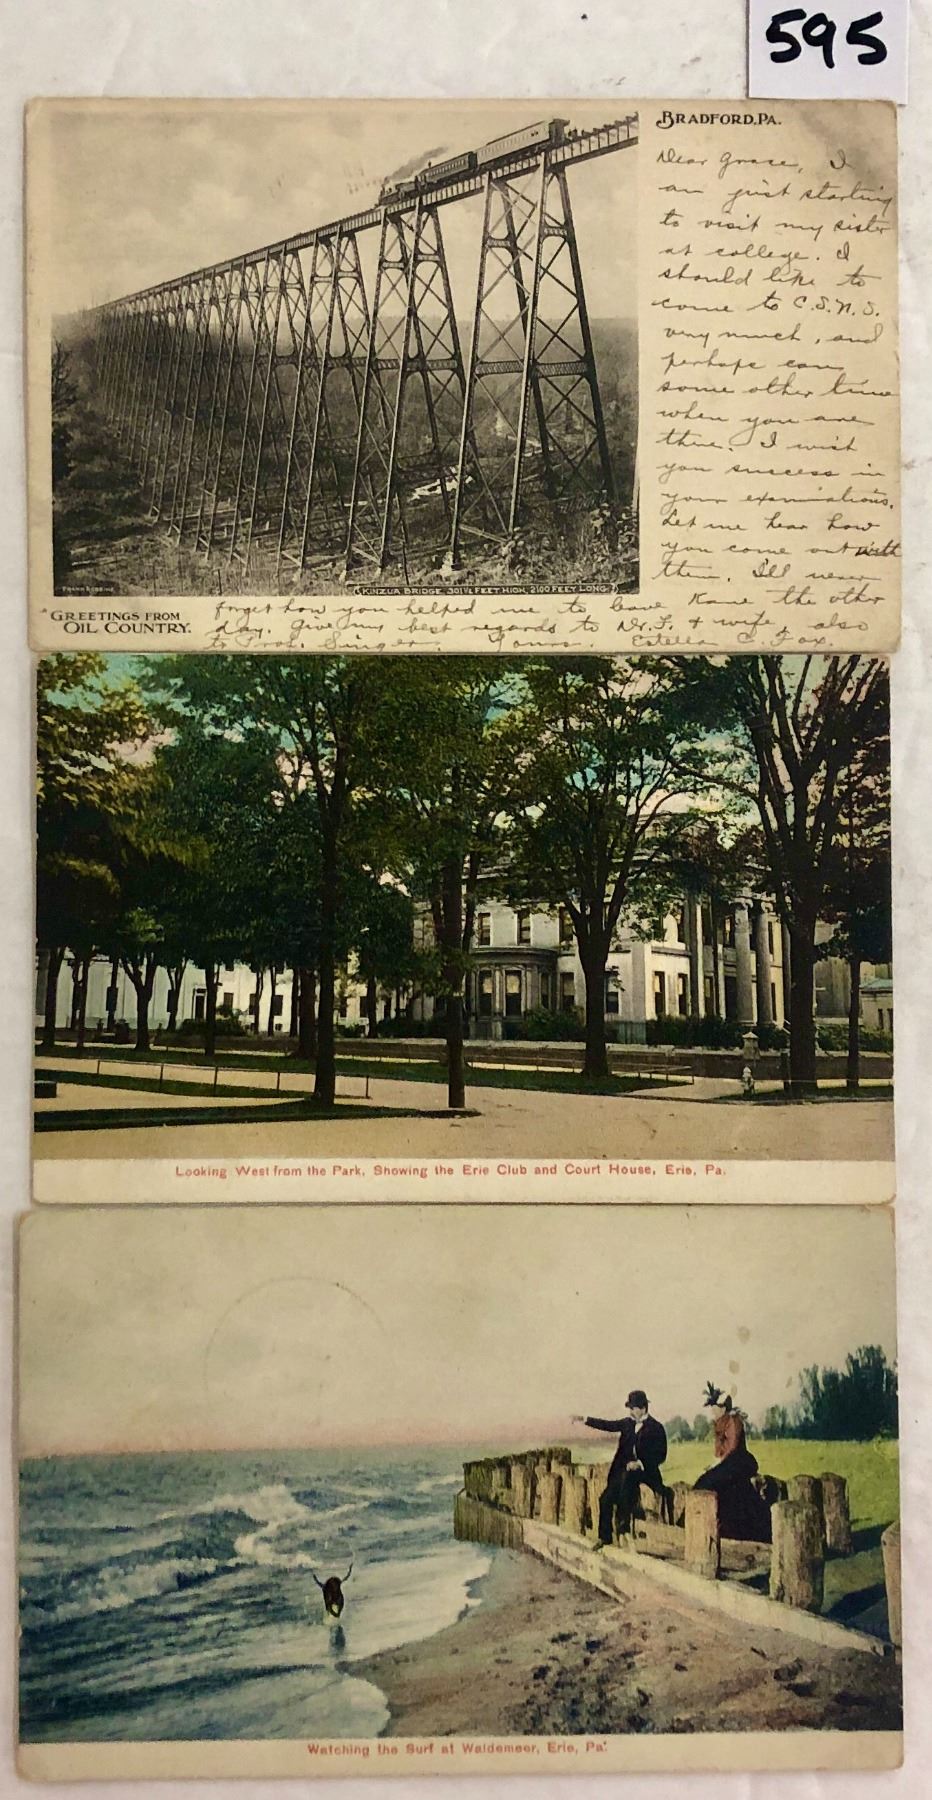 595
BRADFORD, PA.
Dear Grace, I
am just starting
to visit my sister
at college. I
should like to
come to C.S.N.S.
very much, and
perhaps can
some other time
when you are
there. I wish
you success in
your examinations.
Let me hear how
you come out with
them. I'll never
forget how you helped me to leave Kane the other
day. Give my best regards to Dr. F. & wife, also
to Prof. Singer. Yours. Estella C. Fox.
FRANK ROBBINS
KINZUA BRIDGE. 301½ FEET HIGH, 2100 FEET LONG
GREETINGS FROM
OIL COUNTRY.
Looking West from the Park, Showing the Erie Club and Court House, Erie, Pa.
Watching the Surf at Waldemeer, Erie, Pa.